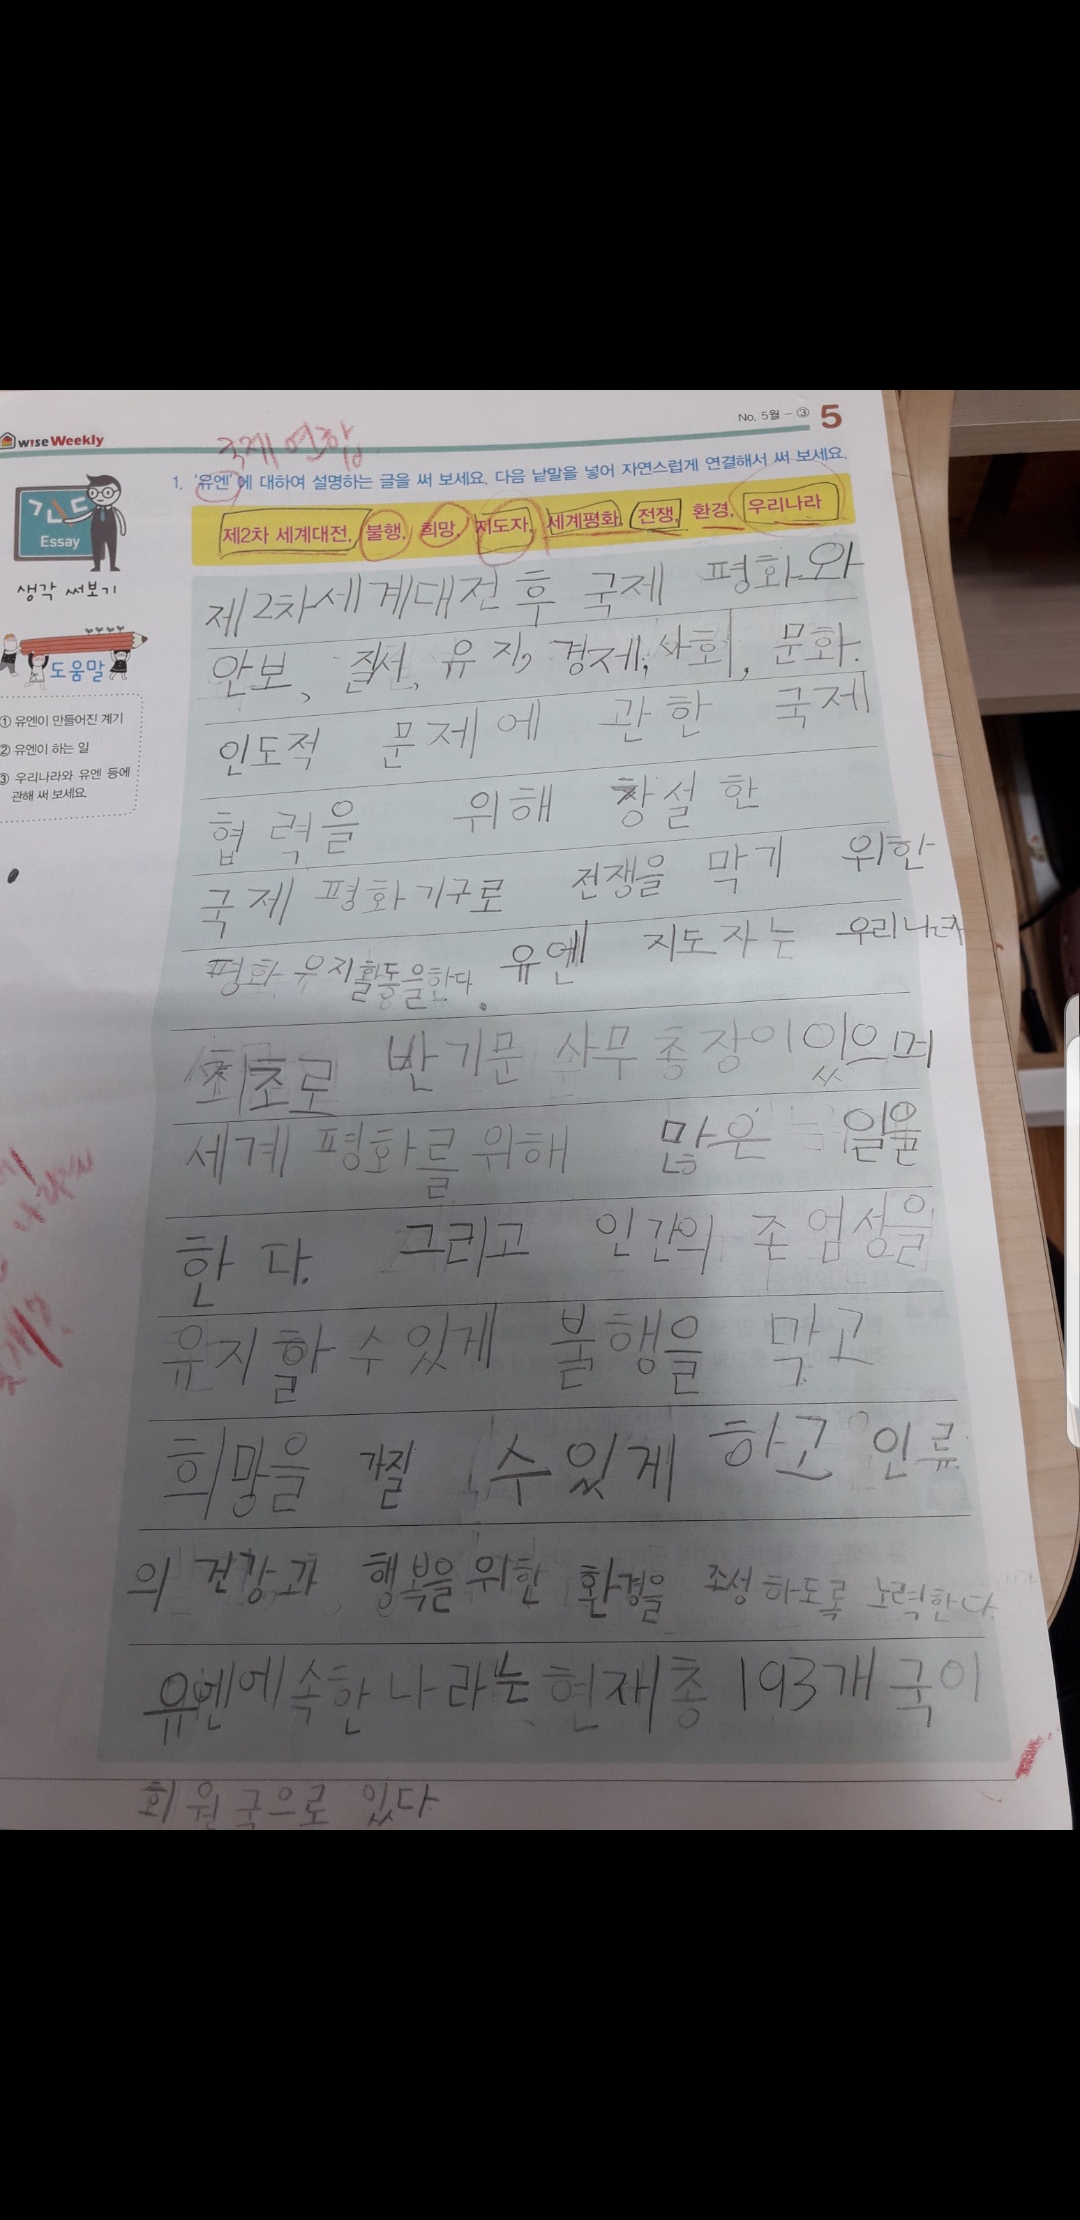 No. 5월 - ③ 5
wise Weekly
국제 연합
1. '유엔'에 대하여 설명하는 글을 써 보세요. 다음 낱말을 넣어 자연스럽게 연결해서 써 보세요.
제2차 세계대전, 불행, 희망, 지도자, 세계평화, 전쟁, 환경, 우리나라
Essay
생각 써보기
도움말
① 유엔이 만들어진 계기
② 유엔이 하는 일
③ 우리나라와 유엔 등에
관해 써 보세요.
제2차세계대전 후 국제 평화와
안보, 질서, 유지, 경제, 사회, 문화.
인도적 문제에 관한 국제
협력을 위해 창설한
국제 평화기구로 전쟁을 막기 위한
평화 유지활동을한다. 유엔 지도자는 우리나라
최초로 반기문 사무총장이 있으며
세계 평화를 위해 많은 일을
한다. 그리고 인간의 존엄성을
유지할 수 있게 불행을 막고
희망을 가질 수 있게 하고 인류
의 건강과 행복을 위한 환경을 조성하도록 노력한다.
유엔에 속한 나라는 현재 총 193개 국이
회원국으로 있다